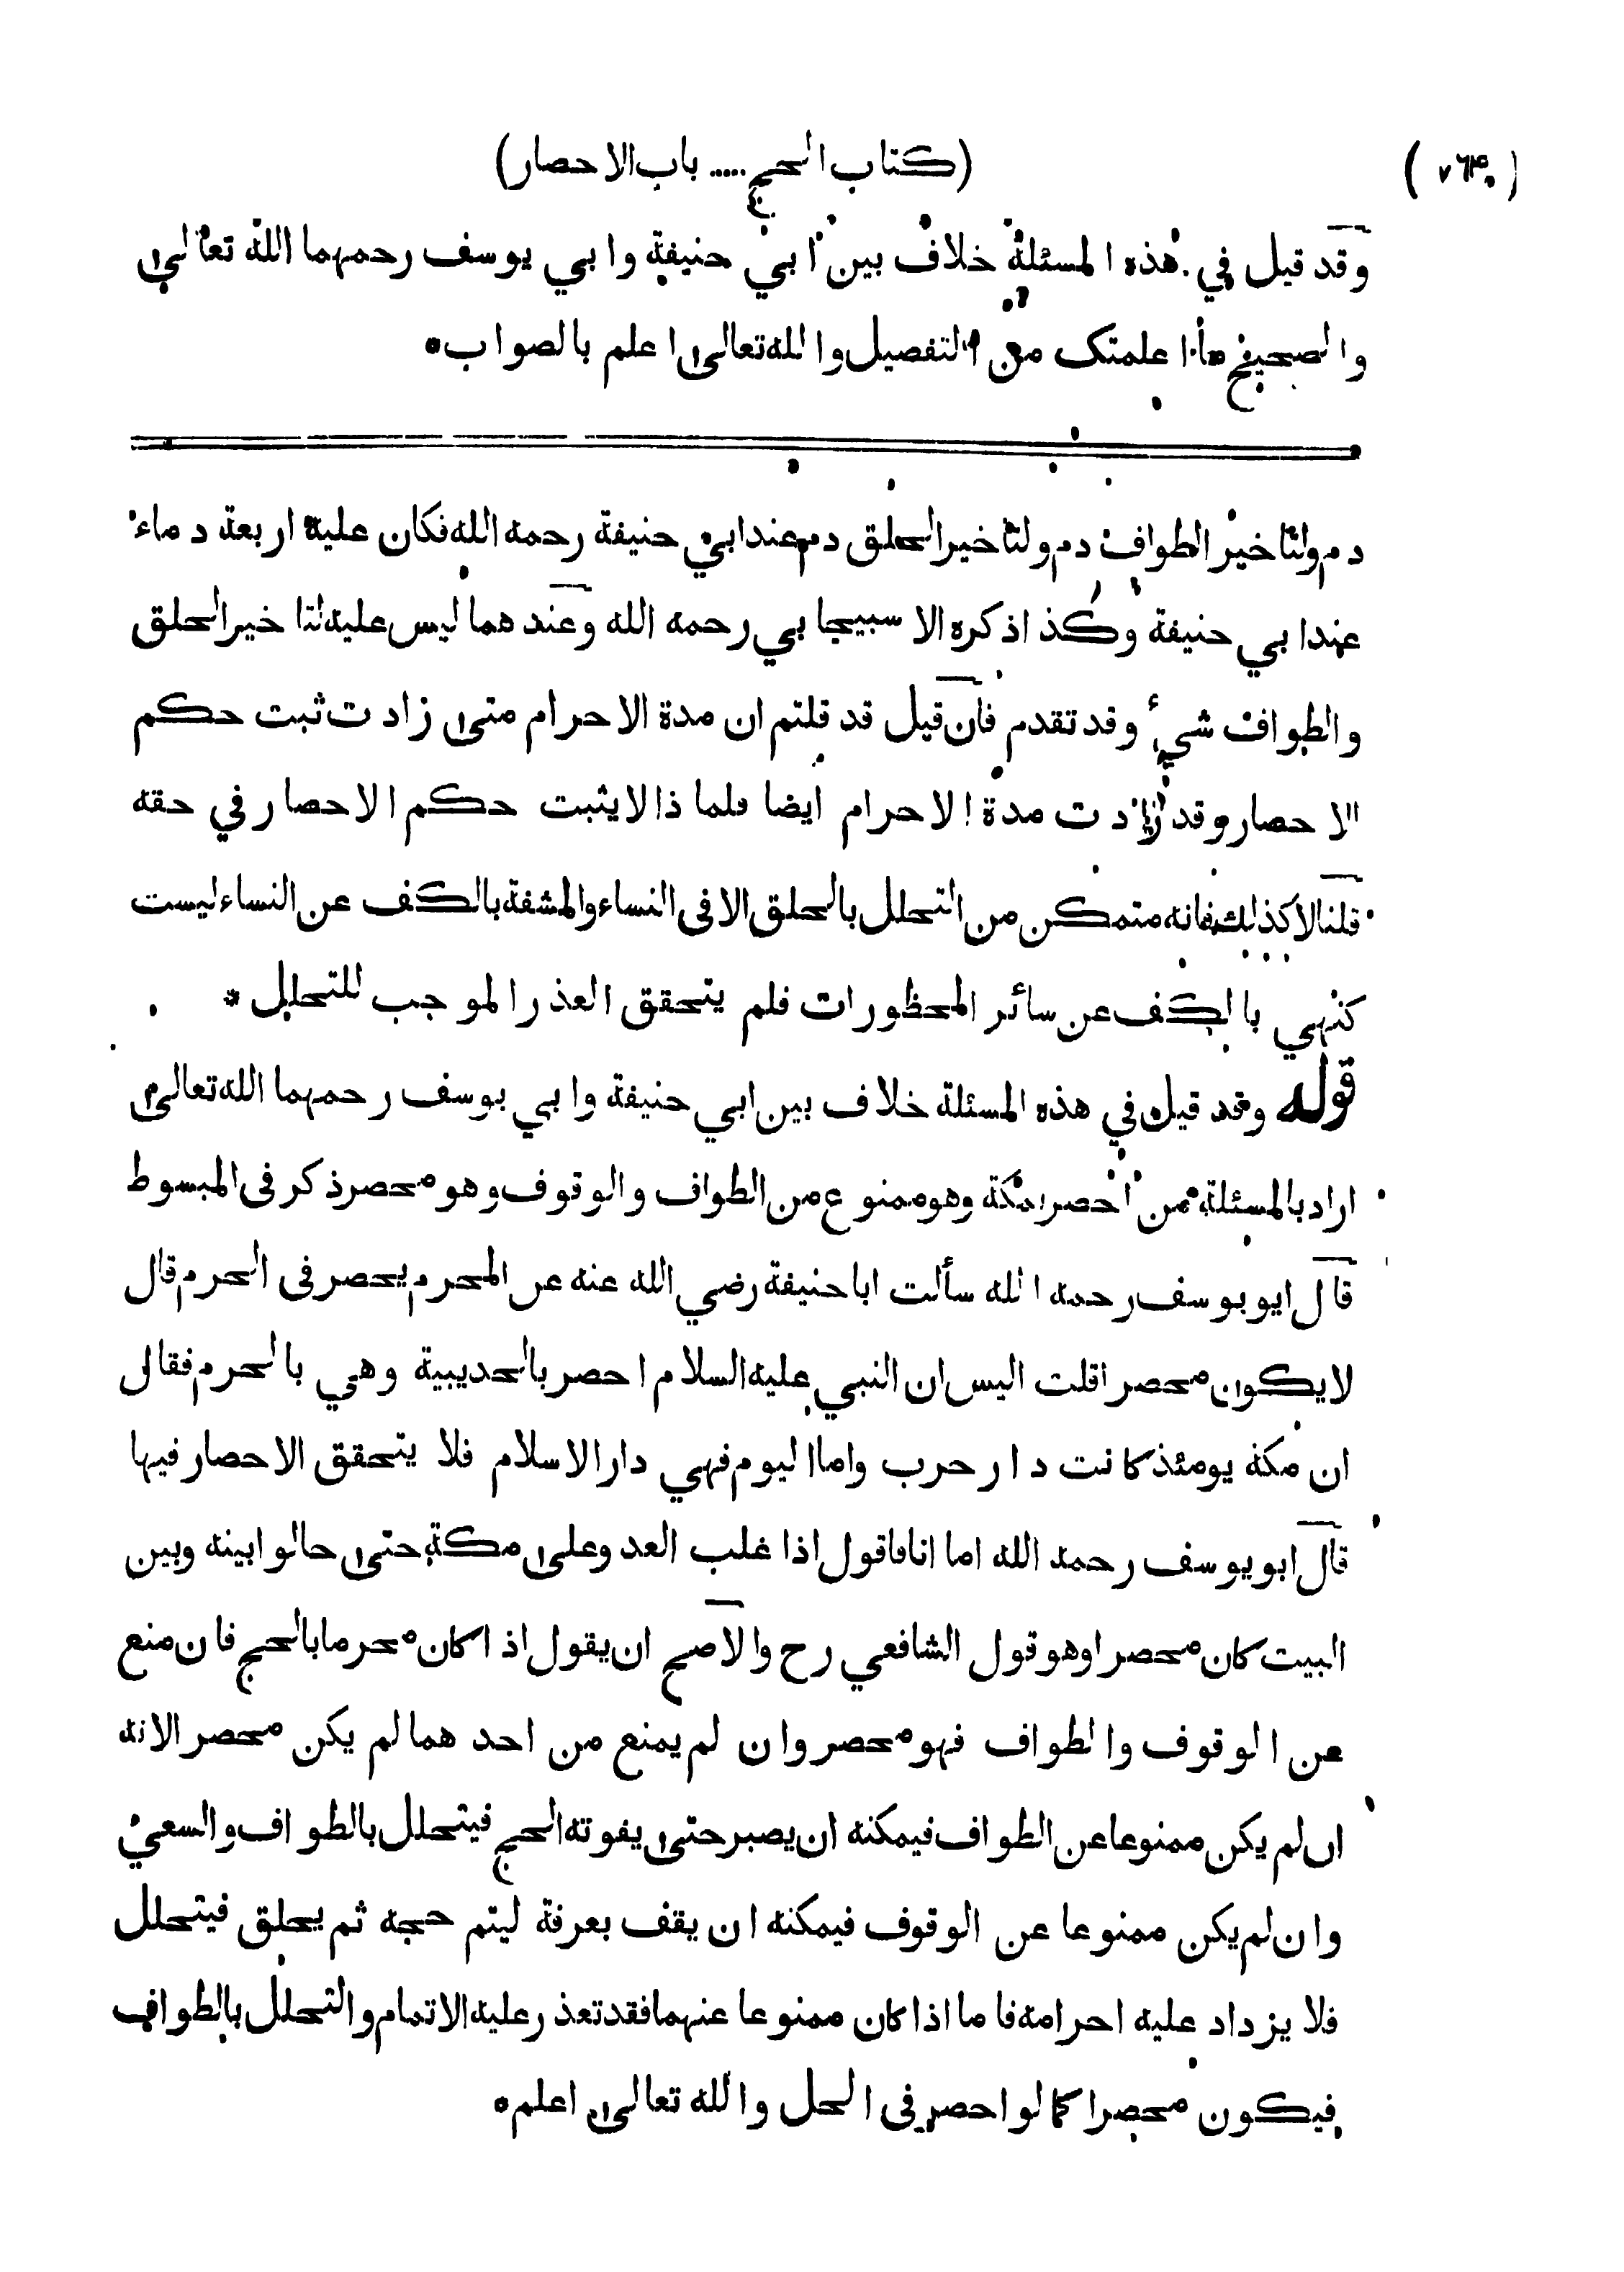 (كتاب الحج ..... باب الاحصار) (٧٦٤)
وقد قيل في هذه المسئلة خلاف بين ابي حنيفة وابي يوسف رحمهما الله تعالى
والصحيح ما اعلمتك من التفصيل والله تعالى اعلم بالصواب ه
دم ولتاخير الطواف دم ولتاخير الحلق دم عند ابي حنيفة رحمه الله فكان عليه اربعة دماء
عند ابي حنيفة وكذا ذكره الاسبيجابي رحمه الله وعندهما ليس عليه لتاخير الحلق
والطواف شيء وقد تقدم فان قيل قد قلتم ان مدة الاحرام متى زادت ثبت حكم
الاحصار وقد زادت مدة الاحرام ايضا فلماذا لا يثبت حكم الاحصار في حقه
قلنا لا كذلك فانه متمكن من التحلل بالحلق الا فى النساء والمشقة بالكف عن النساء ليست
كهي بالكف عن سائر المحظورات فلم يتحقق العذر الموجب للتحلل *
قوله وقد قيل في هذه المسئلة خلاف بين ابي حنيفة وابي يوسف رحمهما الله تعالى
اراد بالمسئلة من احصر بمكة وهو ممنوع من الطواف والوقوف وهو محصر ذكر فى المبسوط
قال ابو يوسف رحمه الله سألت ابا حنيفة رضي الله عنه عن المحرم يحصر فى الحرم قال
لا يكون محصرا قلت اليس ان النبي عليه السلام احصر بالحديبية وهي بالحرم فقال
ان مكة يومئذ كانت دار حرب واما اليوم فهي دار الاسلام فلا يتحقق الاحصار فيها
قال ابو يوسف رحمه الله اما انا فاقول اذا غلب العدو على مكة حتى حالوا بينه وبين
البيت كان محصرا وهو قول الشافعي رح والاصح ان يقول اذا كان محرما بالحج فان منع
عن الوقوف والطواف فهو محصر وان لم يمنع من احدهما لم يكن محصرا لانه
ان لم يكن ممنوعا عن الطواف فيمكنه ان يصبر حتى يفوته الحج فيتحلل بالطواف والسعي
وان لم يكن ممنوعا عن الوقوف فيمكنه ان يقف بعرفة ليتم حجه ثم يحلق فيتحلل
فلا يزداد عليه احرامه فاما اذا كان ممنوعا عنهما فقد تعذر عليه الاتمام والتحلل بالطواف
فيكون محصرا كما لو احصر فى الحل والله تعالى اعلم ه